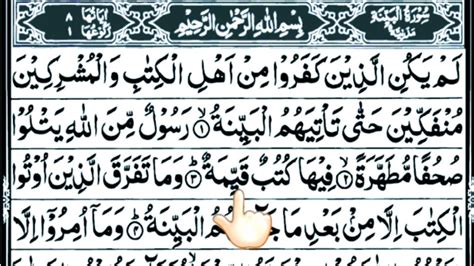 سُوْرَةُ الْبَيِّنَةِ مَدَنِيَّةٌ بِسْمِ اللّٰهِ الرَّحْمٰنِ الرَّحِيْمِ اٰيَاتُهَا ٨ رُكُوْعُهَا ١
لَمْ يَكُنِ الَّذِيْنَ كَفَرُوْا مِنْ اَهْلِ الْكِتٰبِ وَالْمُشْرِكِيْنَ
مُنْفَكِّيْنَ حَتّٰى تَاْتِيَهُمُ الْبَيِّنَةُ ۙ﴿۱﴾ رَسُوْلٌ مِّنَ اللّٰهِ يَتْلُوْا
صُحُفًا مُّطَهَّرَةً ۙ﴿۲﴾ فِيْهَا كُتُبٌ قَيِّمَةٌ ؕ﴿۳﴾ وَمَا تَفَرَّقَ الَّذِيْنَ اُوْتُوا
الْكِتٰبَ اِلَّا مِنْۢ بَعْدِ مَا الْبَيِّنَةُ ؕ﴿۴﴾ وَمَاۤ اُمِرُوْۤا اِلَّا